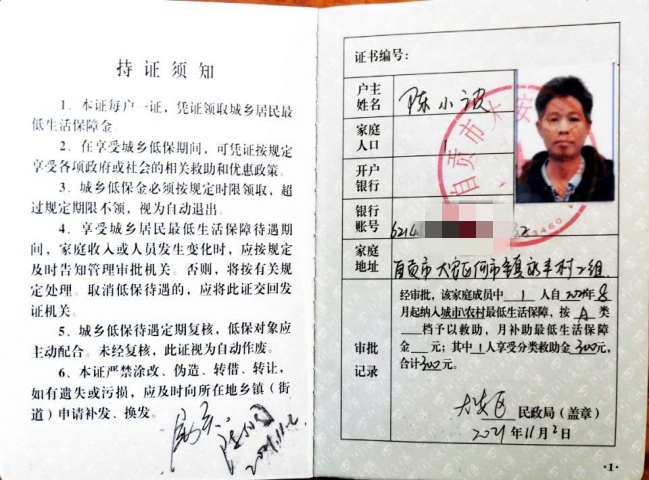 持证须知
1、本证每户一证，凭证领取城乡居民最
低生活保障金。
2、在享受城乡低保期间，可凭证按规定
享受各项政府或社会的相关救助和优惠政策。
3、城乡低保金必须按规定时限领取，超
过规定期限不领，视为自动退出。
4、享受城乡居民最低生活保障待遇期
间，家庭收入或人员发生变化时，应按规定
及时告知管理审批机关。否则，将按有关规
定处理。取消低保待遇的，应将此证交回发
证机关。
5、城乡低保待遇定期复核，低保对象应
主动配合。未经复核，此证视为自动作废。
6、本证严禁涂改、伪造、转借、转让，
如有遗失或污损，应及时向所在地乡镇（街
道）申请补发、换发。
2021.11.2
证书编号：
户主
姓名
陈小波
家庭
人口
1
开户
银行
银行
账号
621
家庭
地址
自贡市大安区何市镇 村2组
经审批，该家庭成员中1人自2021年8
月起纳入城市\农村最低生活保障，按A类
档予以救助，月补助最低生活保障
金 元；其中1人享受分类救助金300元，
合计300元。
审批
记录
大安区民政局（盖章）
2021年11月2日
自贡市大安
·1·